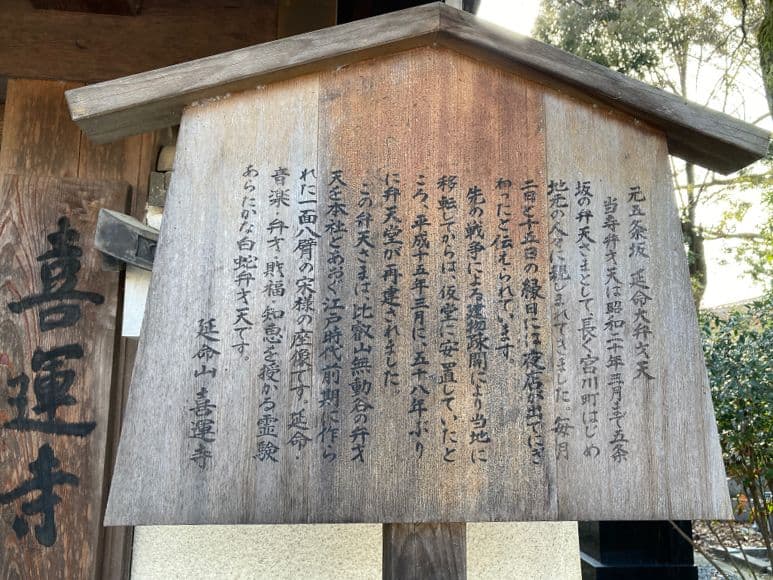 元五条坂 延命大弁才天
当寺弁才天は昭和二十年三月まで五条
坂の弁天さまとして、長く宮川町はじめ
地元の人々に親しまれてきました。毎月
二日と十五日の縁日には夜店が出てにぎ
わったと伝えられています。
先の戦争による建物疎開により当地に
移転してからは、仮堂に安置していたと
ころ、平成十五年三月に、五十八年ぶり
に弁天堂が再建されました。
この弁天さまは、比叡山無動谷の弁才
天を本社とあおぐ江戸時代前期に作ら
れた一面八臂の宋様の座像です。延命・
音楽・弁才・財福・知恵を授かる霊験
あらたかな白蛇弁才天です。
延命山 喜運寺
喜運寺